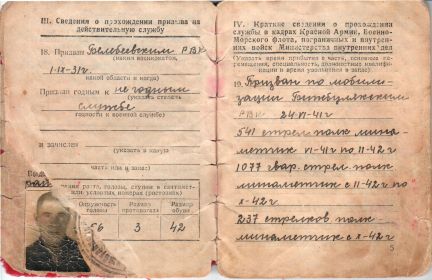 III. Сведения о прохождении призыва на
действительную службу
18. Призван Бельбеевским РВК
(каким военкоматом,
1-IX-31г.
какой области и когда)
Признан годным к не годным
(указать степень
службе
годности к военной службе)
и зачислен
(указать в какую
часть или в запас)
голова, ступни в сантимет-
условных номерах (ростовкам)
Окружность головы
Размер противогаза
Размер обуви
56
3
42
IV. Краткие сведения о прохождении
службы в кадрах Красной Армии, Военно-
Морского флота, пограничных и внутрен-
них войск Министерства внутренних дел
(Указать время прибытия в часть, основные пе-
ремещения, специальность, должностные квалифи-
кации и время увольнения в запас)
19. Призван по мобили-
зации
РВК 24 VI-41г
541 стрел. полк мино-
метчик VI-41г по II-42г
1077 гвар. стрел. полк
минометчик с II-42г по
X-42г.
237 стрелков. полк -
минометчик с X-42г
5